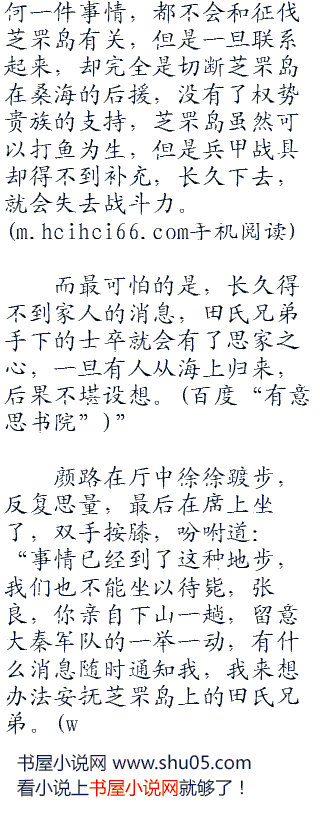 何一件事情，都不会和征伐
芝罘岛有关，但是一旦联系
起来，却完全是切断芝罘岛
在桑海的后援，没有了权势
贵族的支持，芝罘岛虽然可
以打鱼为生，但是兵甲战具
却得不到补充，长久下去，
就会失去战斗力。
(m.hcihci66.com手机阅读)
而最可怕的是，长久得
不到家人的消息，田氏兄弟
手下的士卒就会有了思家之
心，一旦有人从海上归来，
后果不堪设想。(百度“有意
思书院”)”
颜路在厅中徐徐踱步，
反复思量，最后在席上坐
了，双手按膝，吩咐道：
“事情已经到了这种地步，
我们也不能坐以待毙，张
良，你亲自下山一趟，留意
大秦军队的一举一动，有什
么消息随时通知我，我来想
办法安抚芝罘岛上的田氏兄
弟。(w
书屋小说网 www.shu05.com
看小说上书屋小说网就够了！